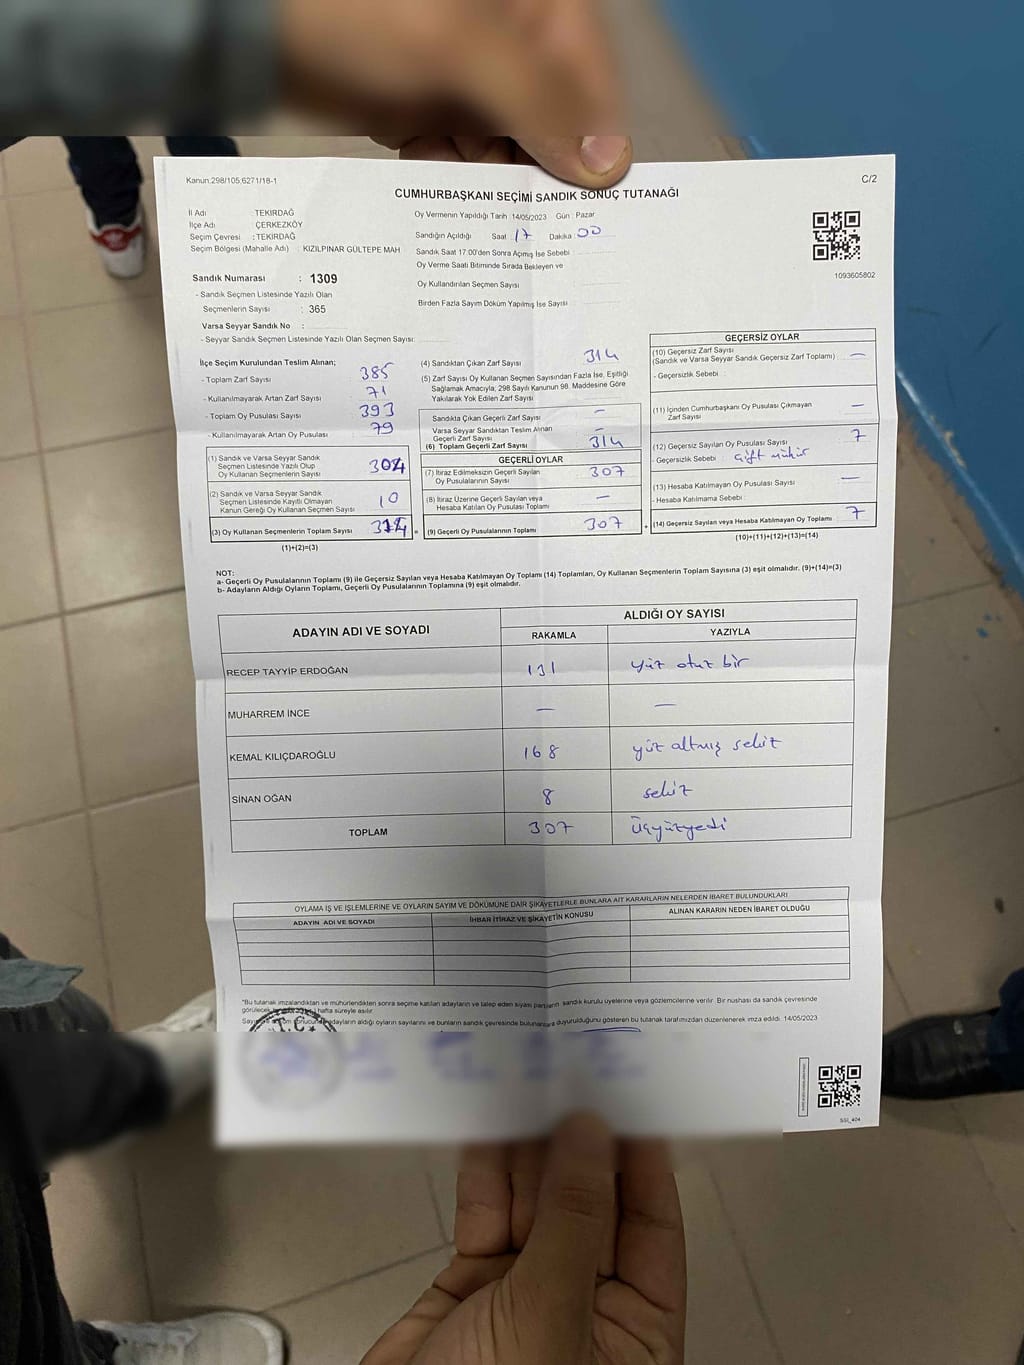 Kanun:298/105;6271/18-1
C/2
CUMHURBAŞKANI SEÇİMİ SANDIK SONUÇ TUTANAĞI
İl Adı TEKİRDAĞ
İlçe Adı ÇERKEZKÖY
Seçim Çevresi : TEKİRDAĞ
Seçim Bölgesi (Mahalle Adı) : KIZILPINAR GÜLTEPE MAH
Sandık Numarası : 1309
- Sandık Seçmen Listesinde Yazılı Olan
Seçmenlerin Sayısı : 365
Varsa Seyyar Sandık No :
- Seyyar Sandık Seçmen Listesinde Yazılı Olan Seçmen Sayısı:
Oy Vermenin Yapıldığı Tarih 14/05/2023 Gün : Pazar
Sandığın Açıldığı Saat 17 Dakika 00
Sandık Saat 17:00'den Sonra Açmış İse Sebebi
Oy Verme Saati Bitiminde Sırada Bekleyen ve
Oy Kullandırılan Seçmen Sayısı
Birden Fazla Sayım Döküm Yapılmış İse Sayısı
1093605802
İlçe Seçim Kurulundan Teslim Alınan;
- Toplam Zarf Sayısı 385
- Kullanılmayarak Artan Zarf Sayısı 71
- Toplam Oy Pusulası Sayısı 393
- Kullanılmayarak Artan Oy Pusulası 79
(1) Sandık ve Varsa Seyyar Sandık
Seçmen Listesinde Yazılı Olup
Oy Kullanan Seçmenlerin Sayısı 304
(2) Sandık ve Varsa Seyyar Sandık
Seçmen Listesinde Kayıtlı Olmayan
Kanun Gereği Oy Kullanan Seçmen Sayısı 10
(3) Oy Kullanan Seçmenlerin Toplam Sayısı 314
(1)+(2)=(3)
(4) Sandıktan Çıkan Zarf Sayısı 314
(5) Zarf Sayısı Oy Kullanan Seçmen Sayısından Fazla İse, Eşitliği
Sağlamak Amacıyla; 298 Sayılı Kanunun 98. Maddesine Göre
Yakılarak Yok Edilen Zarf Sayısı
Sandıkta Çıkan Geçerli Zarf Sayısı —
Varsa Seyyar Sandıktan Teslim Alınan
Geçerli Zarf Sayısı —
(6) Toplam Geçerli Zarf Sayısı 314
GEÇERLİ OYLAR
(7) İtiraz Edilmeksizin Geçerli Sayılan
Oy Pusulalarının Sayısı 307
(8) İtiraz Üzerine Geçerli Sayılan veya
Hesaba Katılan Oy Pusulası Toplamı —
= (9) Geçerli Oy Pusulalarının Toplamı 307
GEÇERSİZ OYLAR
(10) Geçersiz Zarf Sayısı
(Sandık ve Varsa Seyyar Sandık Geçersiz Zarf Toplamı) —
- Geçersizlik Sebebi :
(11) İçinden Cumhurbaşkanı Oy Pusulası Çıkmayan
Zarf Sayısı —
(12) Geçersiz Sayılan Oy Pusulası Sayısı 7
- Geçersizlik Sebebi : çift mühür
(13) Hesaba Katılmayan Oy Pusulası Sayısı —
- Hesaba Katılmama Sebebi :
+ (14) Geçersiz Sayılan veya Hesaba Katılmayan Oy Toplamı 7
(10)+(11)+(12)+(13)=(14)
NOT:
a- Geçerli Oy Pusulalarının Toplamı (9) ile Geçersiz Sayılan veya Hesaba Katılmayan Oy Toplamı (14) Toplamları, Oy Kullanan Seçmenlerin Toplam Sayısına (3) eşit olmalıdır. (9)+(14)=(3)
b- Adayların Aldığı Oyların Toplamı, Geçerli Oy Pusulalarının Toplamına (9) eşit olmalıdır.
ADAYIN ADI VE SOYADI
ALDIĞI OY SAYISI
RAKAMLA YAZIYLA
RECEP TAYYİP ERDOĞAN 131 yüz otuz bir
MUHARREM İNCE — —
KEMAL KILIÇDAROĞLU 168 yüz altmış sekiz
SİNAN OĞAN 8 sekiz
TOPLAM 307 üçyüzyedi
OYLAMA İŞ VE İŞLEMLERİNE VE OYLARIN SAYIM VE DÖKÜMÜNE DAİR ŞİKAYETLERLE BUNLARA AİT KARARLARIN NELERDEN İBARET BULUNDUKLARI
ADAYIN ADI VE SOYADI İHBAR İTİRAZ VE ŞİKAYETİN KONUSU ALINAN KARARIN NEDEN İBARET OLDUĞU
"Bu tutanak imzalandıktan ve mühürlendikten sonra seçime katılan adayların ve talep eden siyasi partilerin sandık kurulu üyelerine veya gözlemcilerine verilir. Bir nüshası da sandık çevresinde
görülecek hafta süreyle asılır.
adayların aldığı oyların sayılarını ve bunların sandık çevresinde bulunanlara duyurulduğunu gösteren bu tutanak tarafımızdan düzenlenerek imza edildi. 14/05/2023
T.C.
SSI_404